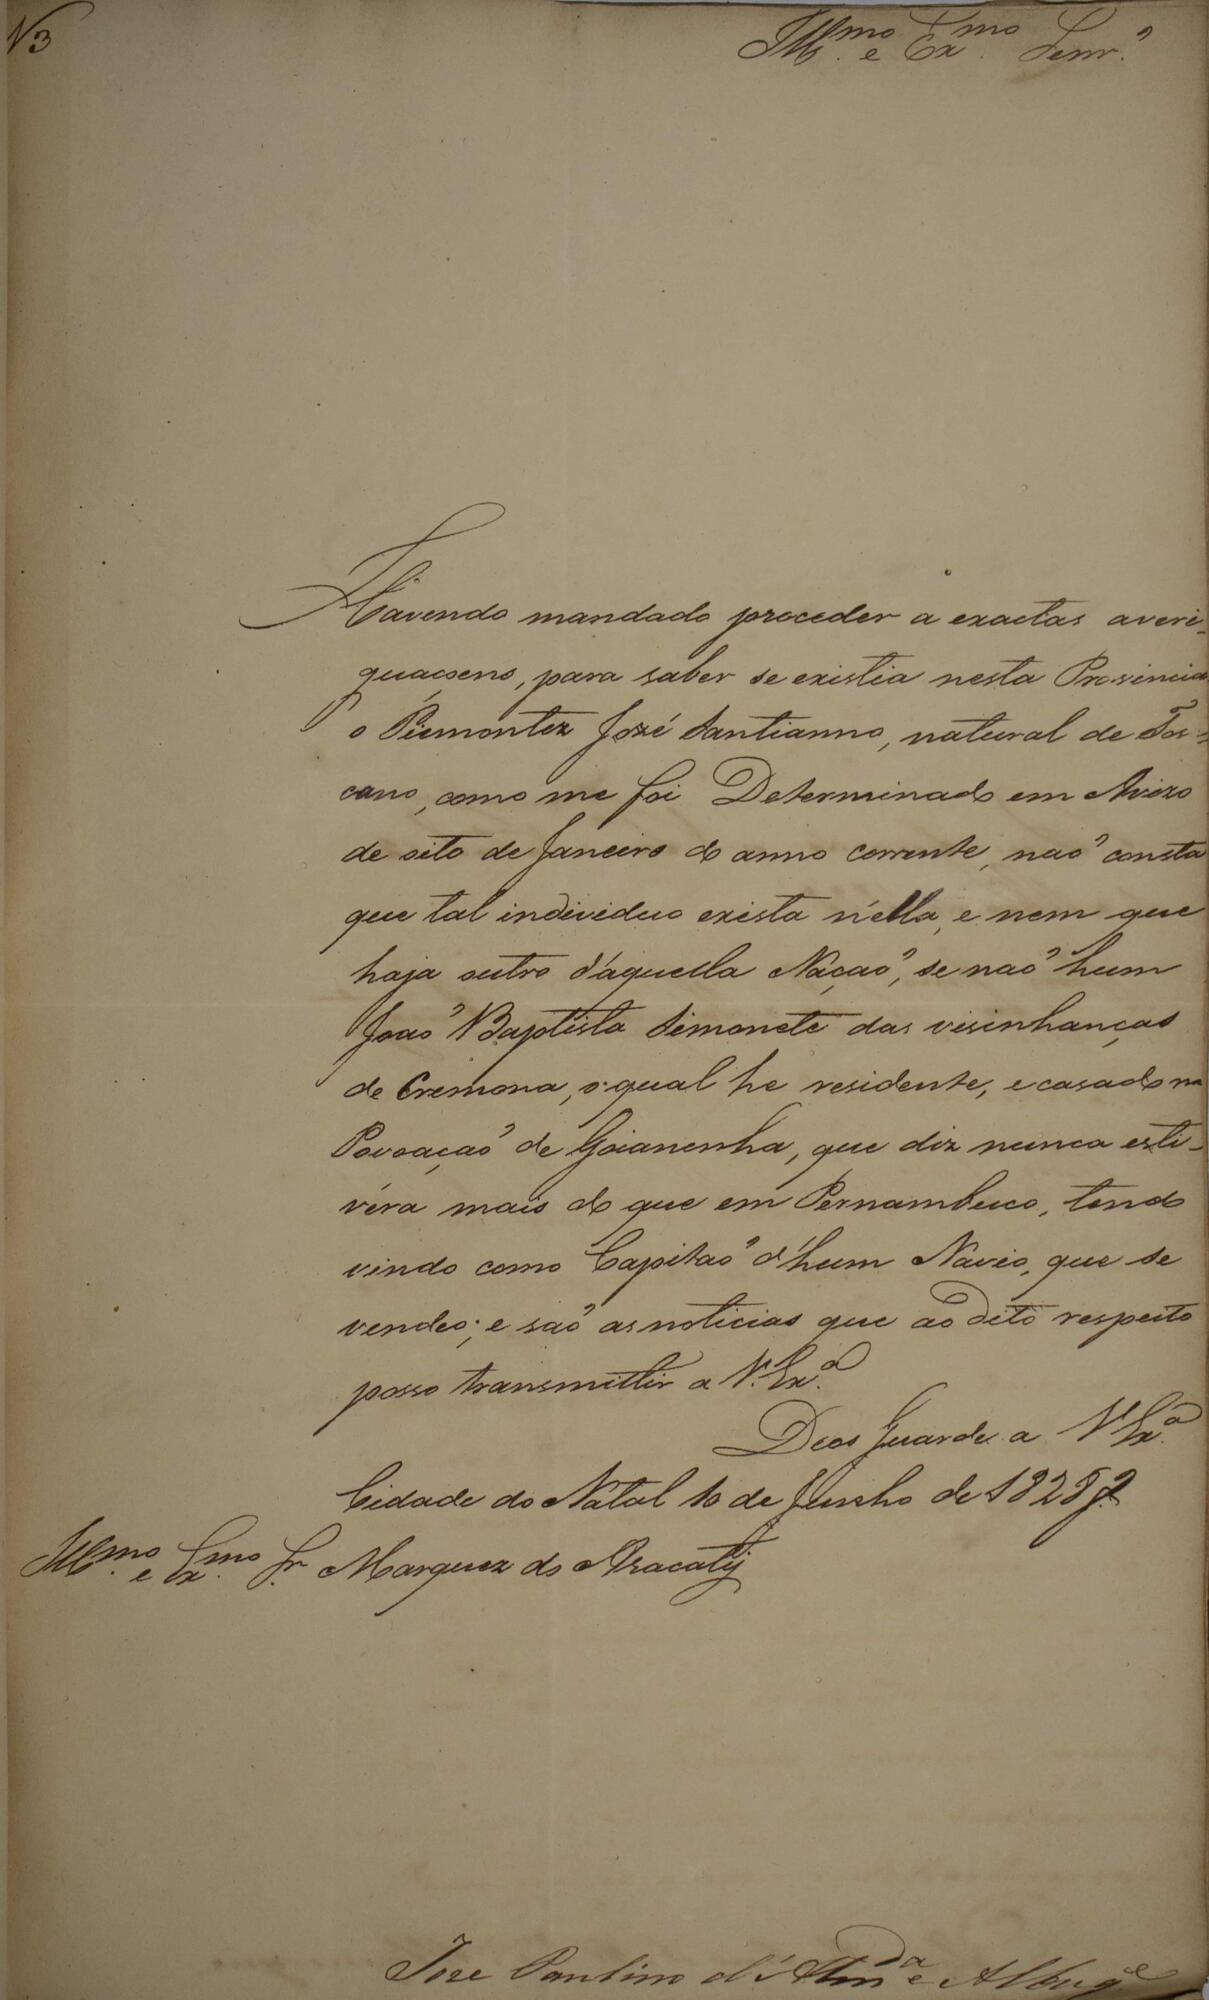 N 3
Ill.mo e Ex.mo Senr.
Havendo mandado proceder a exactas averi-
guaçoens, para saber se existia nesta Provincia
o Piemontez José Santianno, natural de Tos-
cano, como me foi Determinado em Avizo
de oito de Janeiro do anno corrente, naõ consta
que tal individuo exista n'ella, e nem que
haja outro d'aquella Naçaõ, se naõ hum
Joaõ Baptista Simonete das visinhanças
de Cremona, o qual he residente, e casado na
Povoaçaõ de Goianenha, que diz nunca esti-
véra mais do que em Pernambuco, tendo
vindo como Capitaõ d'hum Navio, que se
vendeo; e saõ as noticias que ao dito respeito
posso transmittir a V. Ex.a
Deos Guarde a V Ex.a
Cidade do Natal 10 de Junho de 1828
Ill.mo e Ex.mo Sr. Marquez do Aracatÿ
Joze Paulino d'Almda e Albuqe